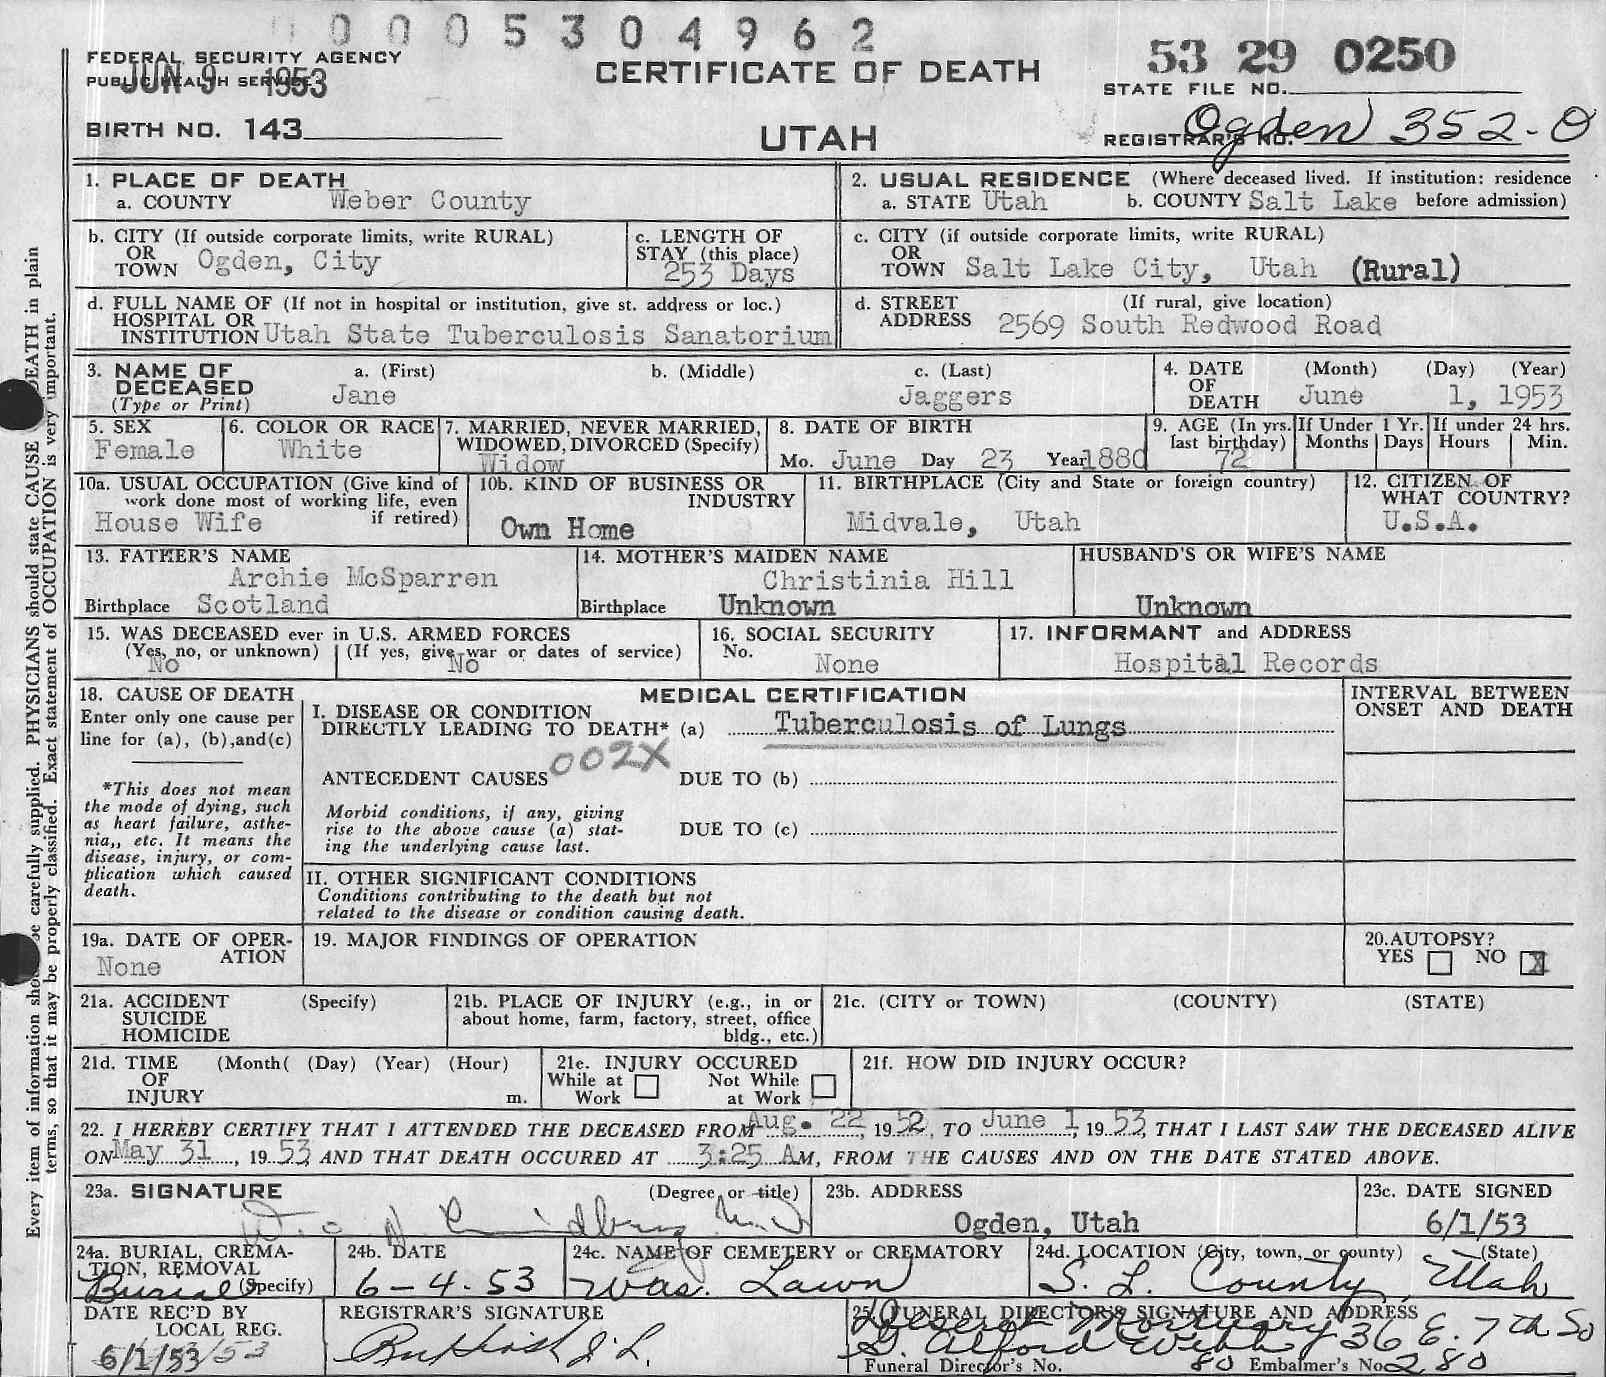 0005304962
FEDERAL SECURITY AGENCY
PUBLIC HEALTH SERVICE
JUN 9 1953
CERTIFICATE OF DEATH
53 29 0250
STATE FILE NO.
BIRTH NO. 143
UTAH
REGISTRAR'S NO. Ogden 352-O
1. PLACE OF DEATH
a. COUNTY Weber County
2. USUAL RESIDENCE (Where deceased lived. If institution: residence before admission)
a. STATE Utah b. COUNTY Salt Lake
b. CITY (If outside corporate limits, write RURAL)
OR
TOWN Ogden, City
c. LENGTH OF
STAY (this place)
253 Days
c. CITY (if outside corporate limits, write RURAL)
OR
TOWN Salt Lake City, Utah (Rural)
d. FULL NAME OF (If not in hospital or institution, give st. address or loc.)
HOSPITAL OR
INSTITUTION Utah State Tuberculosis Sanatorium
d. STREET (If rural, give location)
ADDRESS 2569 South Redwood Road
3. NAME OF DECEASED
(Type or Print)
a. (First) b. (Middle) c. (Last)
Jane Jaggers
4. DATE OF DEATH
(Month) (Day) (Year)
June 1, 1953
5. SEX
Female
6. COLOR OR RACE
White
7. MARRIED, NEVER MARRIED,
WIDOWED, DIVORCED (Specify)
Widow
8. DATE OF BIRTH
Mo. June Day 23 Year 1880
9. AGE (In yrs. last birthday)
72
If Under 1 Yr.
Months Days
If under 24 hrs.
Hours Min.
10a. USUAL OCCUPATION (Give kind of
work done most of working life, even
if retired)
House Wife
10b. KIND OF BUSINESS OR
INDUSTRY
Own Home
11. BIRTHPLACE (City and State or foreign country)
Midvale, Utah
12. CITIZEN OF
WHAT COUNTRY?
U.S.A.
13. FATHER'S NAME
Archie McSparren
Birthplace Scotland
14. MOTHER'S MAIDEN NAME
Christinia Hill
Birthplace Unknown
HUSBAND'S OR WIFE'S NAME
Unknown
15. WAS DECEASED ever in U.S. ARMED FORCES
(Yes, no, or unknown) (If yes, give war or dates of service)
No No
16. SOCIAL SECURITY
No. None
17. INFORMANT and ADDRESS
Hospital Records
18. CAUSE OF DEATH
Enter only one cause per
line for (a), (b),and(c)
*This does not mean
the mode of dying, such
as heart failure, asthe-
nia,, etc. It means the
disease, injury, or com-
plication which caused
death.
MEDICAL CERTIFICATION
I. DISEASE OR CONDITION
DIRECTLY LEADING TO DEATH* (a) Tuberculosis of Lungs
002X
ANTECEDENT CAUSES DUE TO (b)
Morbid conditions, if any, giving
rise to the above cause (a) stat-
ing the underlying cause last.
DUE TO (c)
II. OTHER SIGNIFICANT CONDITIONS
Conditions contributing to the death but not
related to the disease or condition causing death.
INTERVAL BETWEEN
ONSET AND DEATH
19a. DATE OF OPER-
ATION
None
19. MAJOR FINDINGS OF OPERATION
20.AUTOPSY?
YES NO X
21a. ACCIDENT (Specify)
SUICIDE
HOMICIDE
21b. PLACE OF INJURY (e.g., in or
about home, farm, factory, street, office
bldg., etc.)
21c. (CITY or TOWN) (COUNTY) (STATE)
21d. TIME (Month( (Day) (Year) (Hour)
OF
INJURY m.
21e. INJURY OCCURED
While at Work Not While at Work
21f. HOW DID INJURY OCCUR?
22. I HEREBY CERTIFY THAT I ATTENDED THE DECEASED FROM Aug. 22, 1952, TO June 1, 1953, THAT I LAST SAW THE DECEASED ALIVE
ON May 31, 1953 AND THAT DEATH OCCURED AT 3:25 AM, FROM THE CAUSES AND ON THE DATE STATED ABOVE.
23a. SIGNATURE (Degree or title)
23b. ADDRESS
Ogden, Utah
23c. DATE SIGNED
6/1/53
24a. BURIAL, CREMA-
TION, REMOVAL
(Specify)
Burial
24b. DATE
6-4-53
24c. NAME OF CEMETERY or CREMATORY
Was. Lawn
24d. LOCATION (City, town, or county) (State)
S. L. County, Utah
DATE REC'D BY
LOCAL REG.
6/1/53
REGISTRAR'S SIGNATURE
25. FUNERAL DIRECTOR'S SIGNATURE AND ADDRESS
Deseret Mortuary 36 E. 7th So
G. Alford Webb
Funeral Director's No. 80 Embalmer's No. 280
Every item of information should be carefully supplied. PHYSICIANS should state CAUSE OF DEATH in plain
terms, so that it may be properly classified. Exact statement of OCCUPATION is very important.